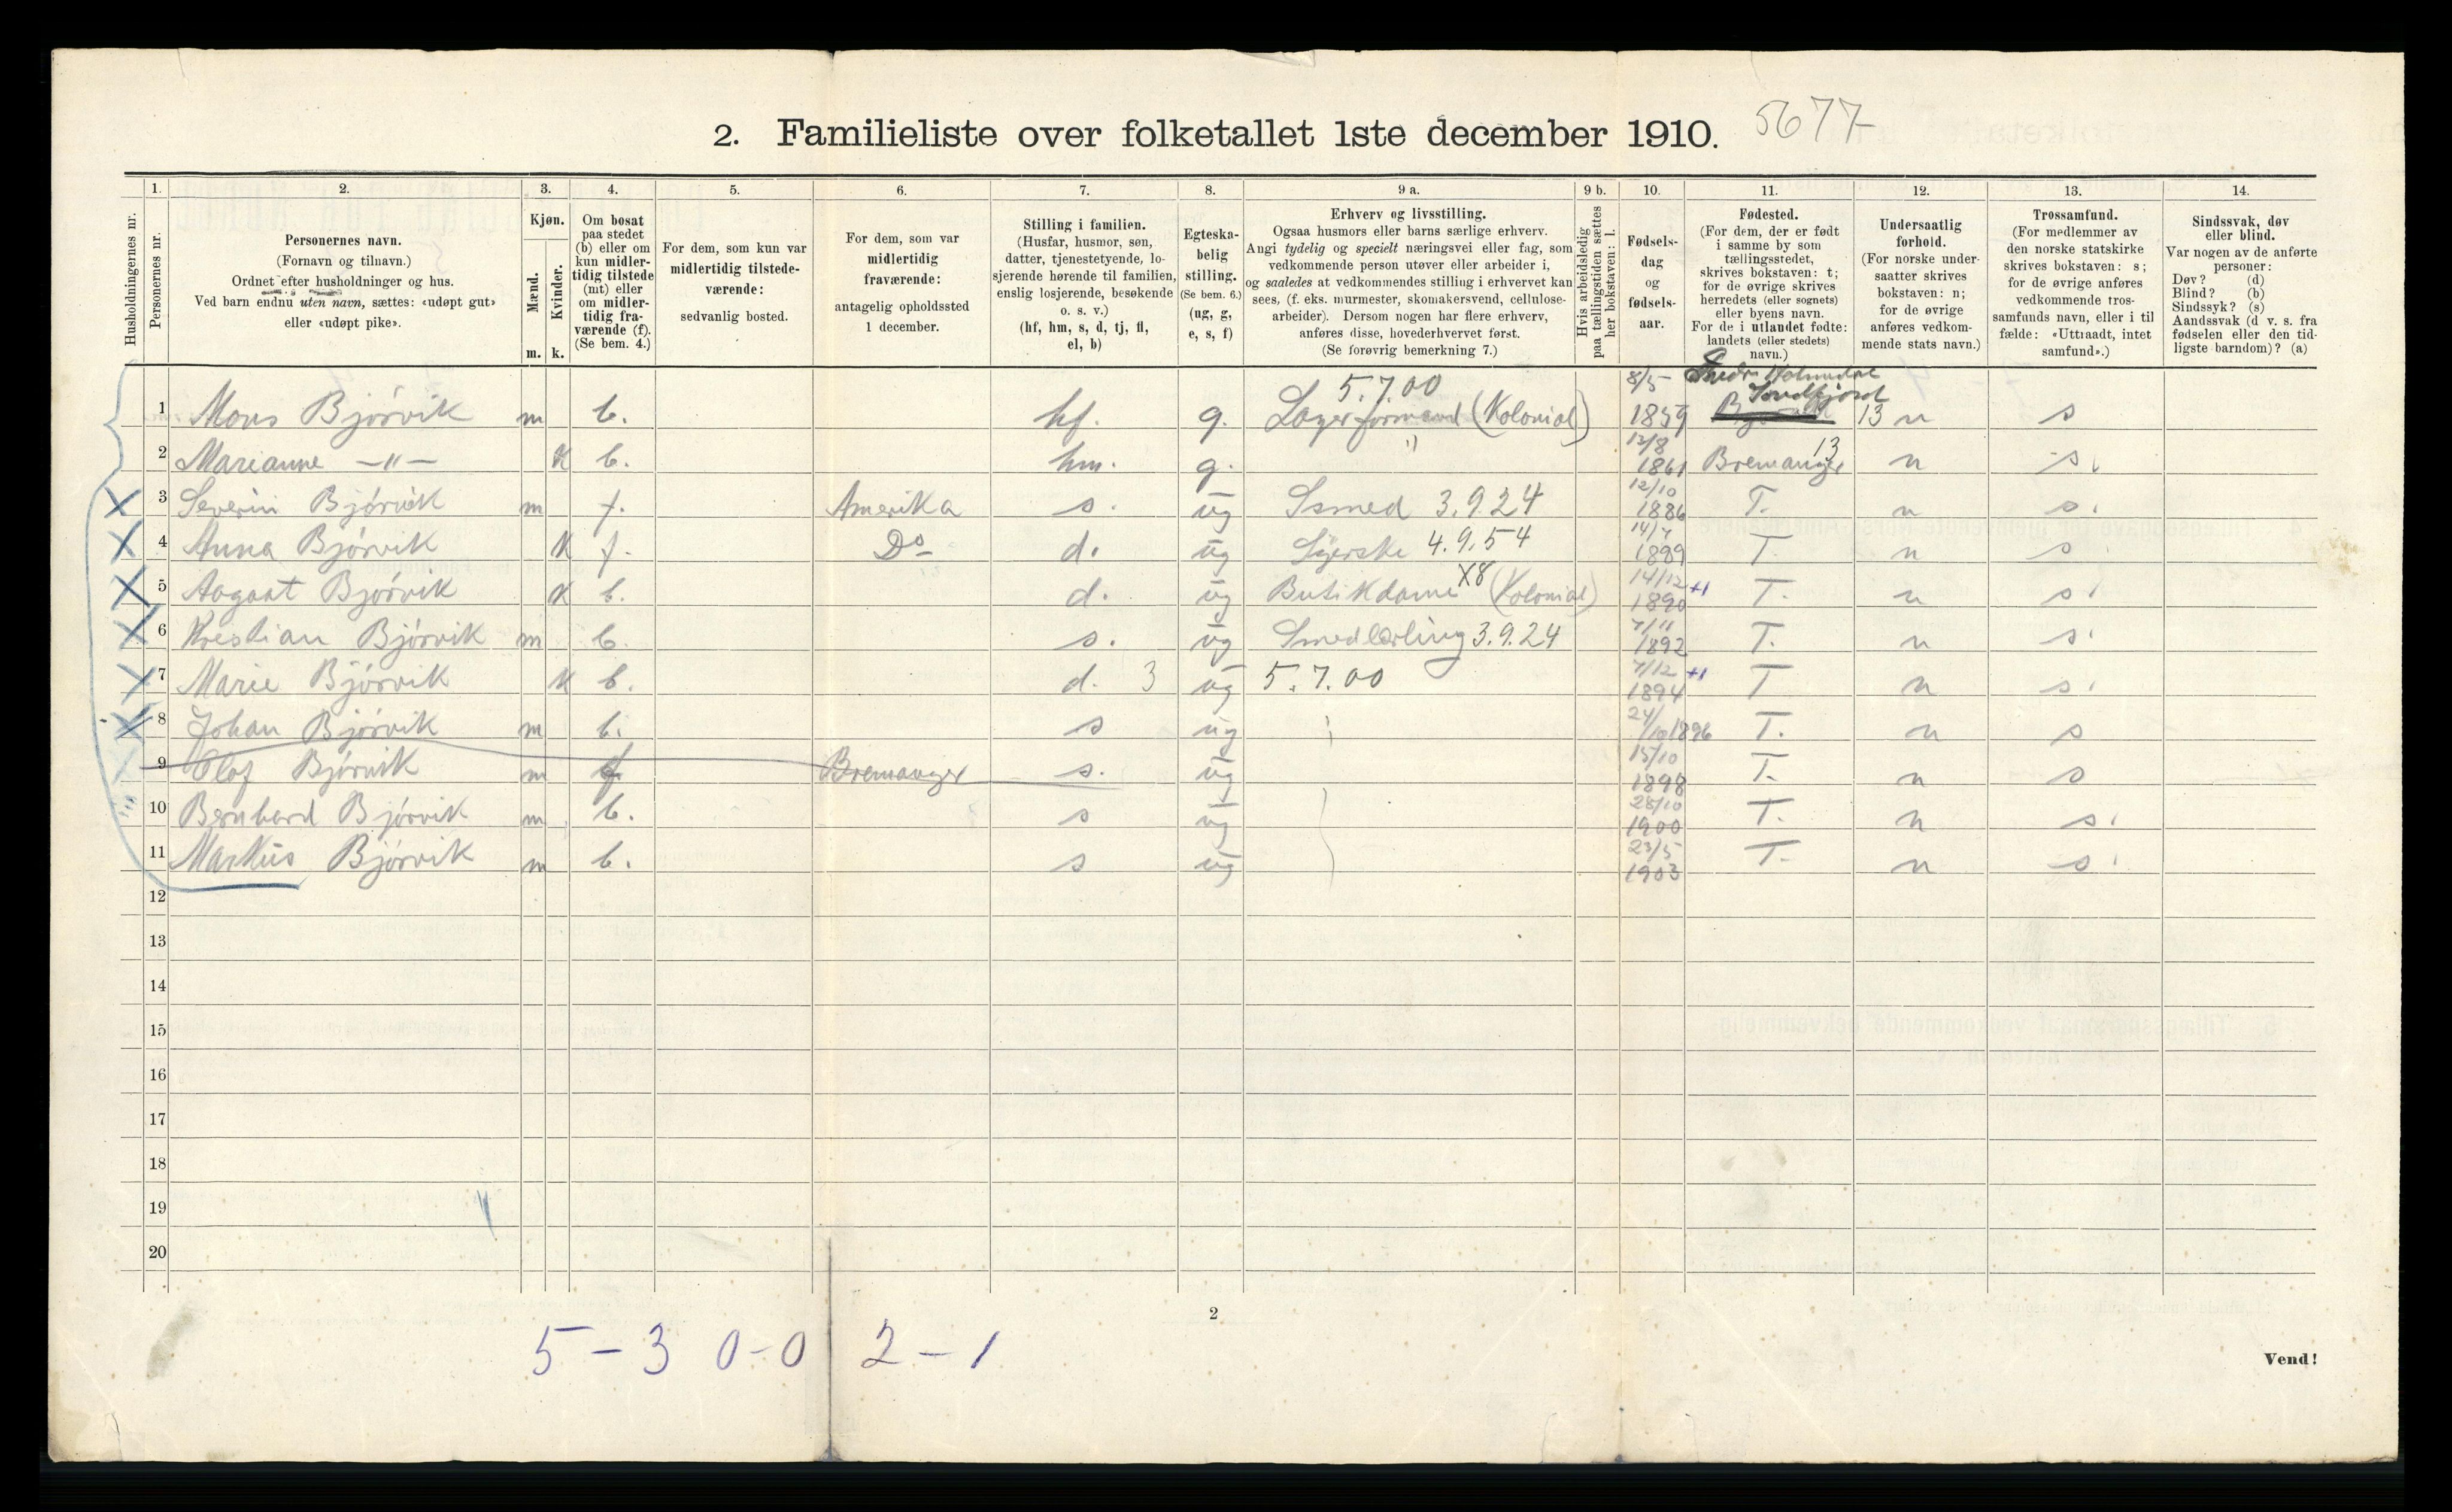 2. Familieliste over folketallet 1ste december 1910. 5677
Husholdningernes nr.
1. Personernes nr.
2. Personernes navn. (Fornavn og tilnavn.) Ordnet efter husholdninger og hus. Ved barn endnu uten navn, sættes: «udøpt gut» eller «udøpt pike».
3. Kjøn. Mænd. m. Kvinder. k.
4. Om bosat paa stedet (b) eller om kun midlertidig tilstede (mt) eller om midlertidig fraværende (f). (Se bem. 4.)
5. For dem, som kun var midlertidig tilstedeværende: sedvanlig bosted.
6. For dem, som var midlertidig fraværende: antagelig opholdssted 1 december.
7. Stilling i familien. (Husfar, husmor, søn, datter, tjenestetyende, losjerende hørende til familien, enslig losjerende, besøkende o. s. v.) (hf, hm, s, d, tj, fl, el, b)
8. Egteskabelig stilling. (Se bem. 6.) (ug, g, e, s, f)
9 a. Erhverv og livsstilling. Ogsaa husmors eller barns særlige erhverv. Angi tydelig og specielt næringsvei eller fag, som vedkommende person utøver eller arbeider i, og saaledes at vedkommendes stilling i erhvervet kan sees, (f. eks. murmester, skomakersvend, cellulosearbeider). Dersom nogen har flere erhverv, anføres disse, hovederhvervet først. (Se forøvrig bemerkning 7.)
9 b. Hvis arbeidsledig paa tællingstiden sættes her bokstaven: l.
10. Fødselsdag og fødselsaar.
11. Fødested. (For dem, der er født i samme by som tællingsstedet, skrives bokstaven: t; for de øvrige skrives herredets (eller sognets) eller byens navn. For de i utlandet fødte: landets (eller stedets) navn.)
12. Undersaatlig forhold. (For norske undersaatter skrives bokstaven: n; for de øvrige anføres vedkommende stats navn.)
13. Trossamfund. (For medlemmer av den norske statskirke skrives bokstaven: s; for de øvrige anføres vedkommende trossamfunds navn, eller i tilfælde: «Uttraadt, intet samfund».)
14. Sindssvak, døv eller blind. Var nogen av de anførte personer: Døv? (d) Blind? (b) Sindssyk? (s) Aandssvak (d v. s. fra fødselen eller den tidligste barndom)? (a)
1 Mons Bjørvik m b. hf. g. 5.7.00 Lagerformand (Kolonial) 8/5 1859 Søndfjord 13 n s
2 Marianne —"— K b. hm. g. " 12/8 1861 Bremanger 13 n s.
X 3 Severin Bjørvik m f. Amerika s. ug Ssmed 3.9.24 12/10 1886 T. n s.
X 4 Anna Bjørvik K f. Do d. ug Syerske 4.9.54 14/7 1889 T. n s
X 5 Aagaat Bjørvik K b. d. ug Butikdame X8 (Kolonial) 14/12 1890 +1 T. n s.
X 6 Krestian Bjørvik m b. s. ug Smedlærling 3.9.24 7/11 1892 T. n s.
X 7 Marie Bjørvik K b. d. 3 ug 5.7.00 7/12 1894 +1 T n s.
X 8 Johan Bjørvik m b. s ug 24/10 1896 T. n s
9 Olaf Bjørvik m f Bremanger s. ug 15/10 1898 T. n s
10 Bernhard Bjørvik m b. s ug 28/10 1900 T. n s.
11 Markus Bjørvik m b. s ug 23/5 1903 T. n s.
12
13
14
15
16
17
18
19
20
2
5 - 3 0 - 0 2 - 1
Vend!